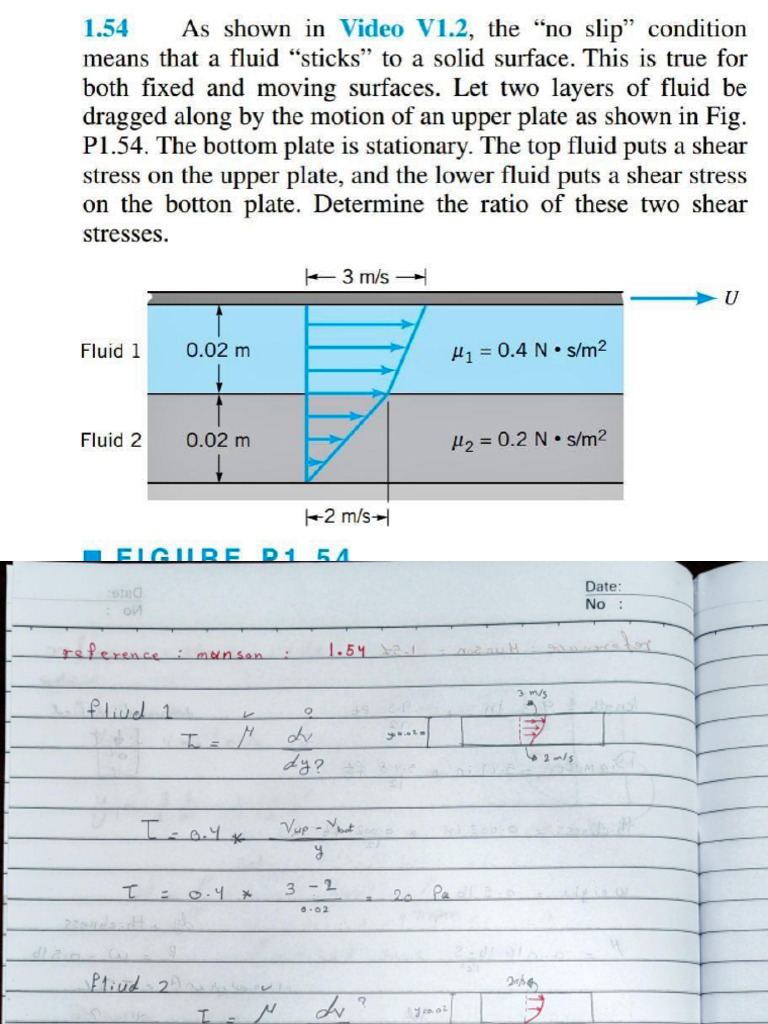 1.54 As shown in Video V1.2, the “no slip” condition
means that a fluid “sticks” to a solid surface. This is true for
both fixed and moving surfaces. Let two layers of fluid be
dragged along by the motion of an upper plate as shown in Fig.
P1.54. The bottom plate is stationary. The top fluid puts a shear
stress on the upper plate, and the lower fluid puts a shear stress
on the botton plate. Determine the ratio of these two shear
stresses.
3 m/s
U
Fluid 1 0.02 m μ1 = 0.4 N • s/m²
Fluid 2 0.02 m μ2 = 0.2 N • s/m²
2 m/s
FIGURE P1.54
Date:
No :
reference : munson : 1.54
fliud 1
3 m/s
τ = μ dv
dy?
y=0.02
2 m/s
τ = 0.4 * Vup - Vbot
y
τ = 0.4 * 3 - 2 = 20 Pa
0.02
fliud 2
τ = μ dv ?
y=0.02